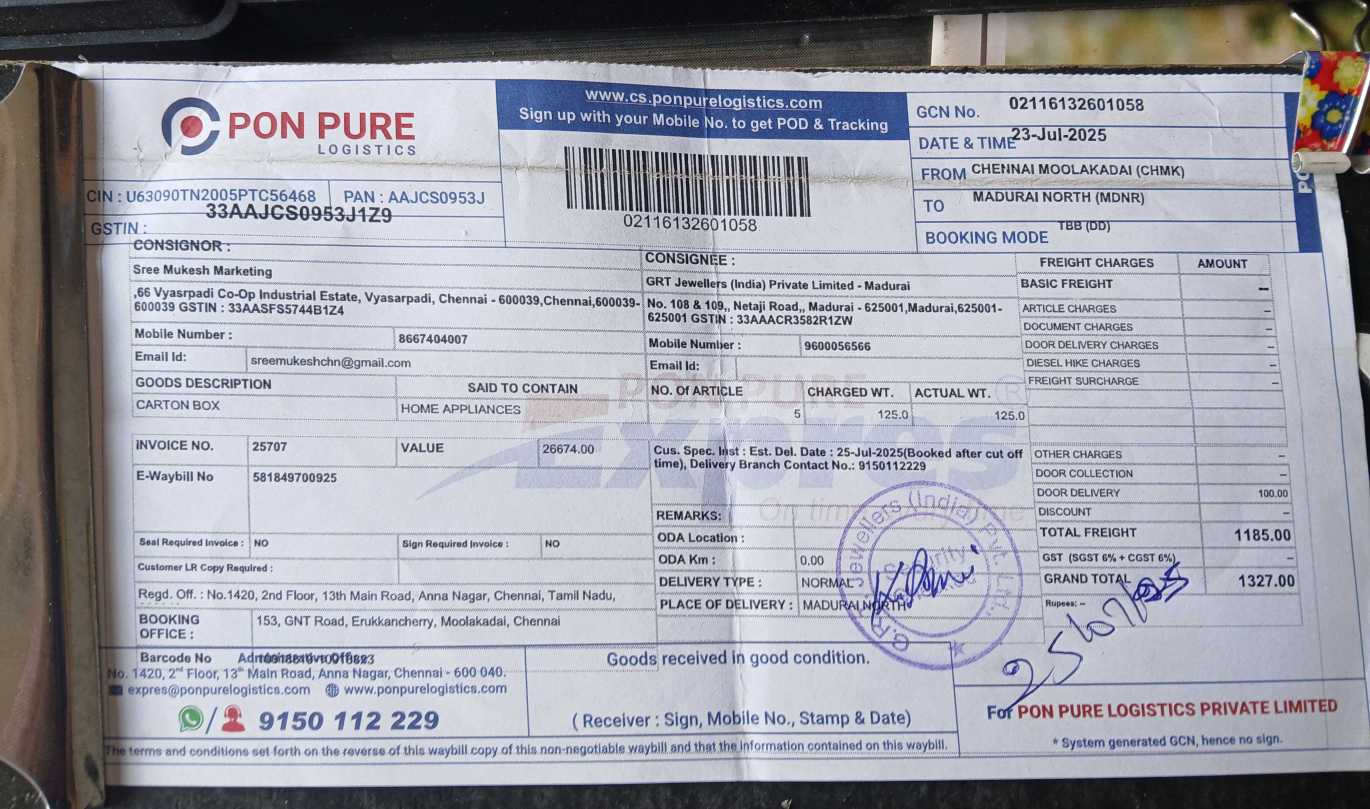 PON PURE
LOGISTICS
CIN : U63090TN2005PTC56468 PAN : AAJCS0953J
33AAJCS0953J1Z9
GSTIN :
www.cs.ponpurelogistics.com
Sign up with your Mobile No. to get POD & Tracking
02116132601058
GCN No. 02116132601058
DATE & TIME 23-Jul-2025
FROM CHENNAI MOOLAKADAI (CHMK)
TO MADURAI NORTH (MDNR)
BOOKING MODE TBB (DD)
CONSIGNOR :
Sree Mukesh Marketing
,66 Vyasrpadi Co-Op Industrial Estate, Vyasarpadi, Chennai - 600039,Chennai,600039-
600039 GSTIN : 33AASFS5744B1Z4
Mobile Number : 8667404007
Email Id: sreemukeshchn@gmail.com
GOODS DESCRIPTION SAID TO CONTAIN
CARTON BOX HOME APPLIANCES
INVOICE NO. 25707 VALUE 26674.00
E-Waybill No 581849700925
Seal Required Invoice : NO Sign Required Invoice : NO
Customer LR Copy Required :
Regd. Off. : No.1420, 2nd Floor, 13th Main Road, Anna Nagar, Chennai, Tamil Nadu,
BOOKING
OFFICE : 153, GNT Road, Erukkancherry, Moolakadai, Chennai
CONSIGNEE :
GRT Jewellers (India) Private Limited - Madurai
No. 108 & 109,, Netaji Road,, Madurai - 625001,Madurai,625001-
625001 GSTIN : 33AAACR3582R1ZW
Mobile Number : 9600056566
Email Id:
NO. Of ARTICLE CHARGED WT. ACTUAL WT.
5 125.0 125.0
PON PURE
Expres
On time
Cus. Spec. Inst : Est. Del. Date : 25-Jul-2025(Booked after cut off
time), Delivery Branch Contact No.: 9150112229
REMARKS:
ODA Location :
ODA Km : 0.00
DELIVERY TYPE : NORMAL
PLACE OF DELIVERY : MADURAI NORTH
Jewellers (India) Pvt. Ltd.
FREIGHT CHARGES AMOUNT
BASIC FREIGHT --
ARTICLE CHARGES --
DOCUMENT CHARGES --
DOOR DELIVERY CHARGES --
DIESEL HIKE CHARGES --
FREIGHT SURCHARGE --
OTHER CHARGES --
DOOR COLLECTION --
DOOR DELIVERY 100.00
DISCOUNT --
TOTAL FREIGHT 1185.00
GST (SGST 6% + CGST 6%) --
GRAND TOTAL 1327.00
Rupees: --
Barcode No
No. 1420, 2nd Floor, 13th Main Road, Anna Nagar, Chennai - 600 040.
expres@ponpurelogistics.com www.ponpurelogistics.com
/ 9150 112 229
Goods received in good condition.
(Receiver : Sign, Mobile No., Stamp & Date)
For PON PURE LOGISTICS PRIVATE LIMITED
* System generated GCN, hence no sign.
The terms and conditions set forth on the reverse of this waybill copy of this non-negotiable waybill and that the information contained on this waybill.